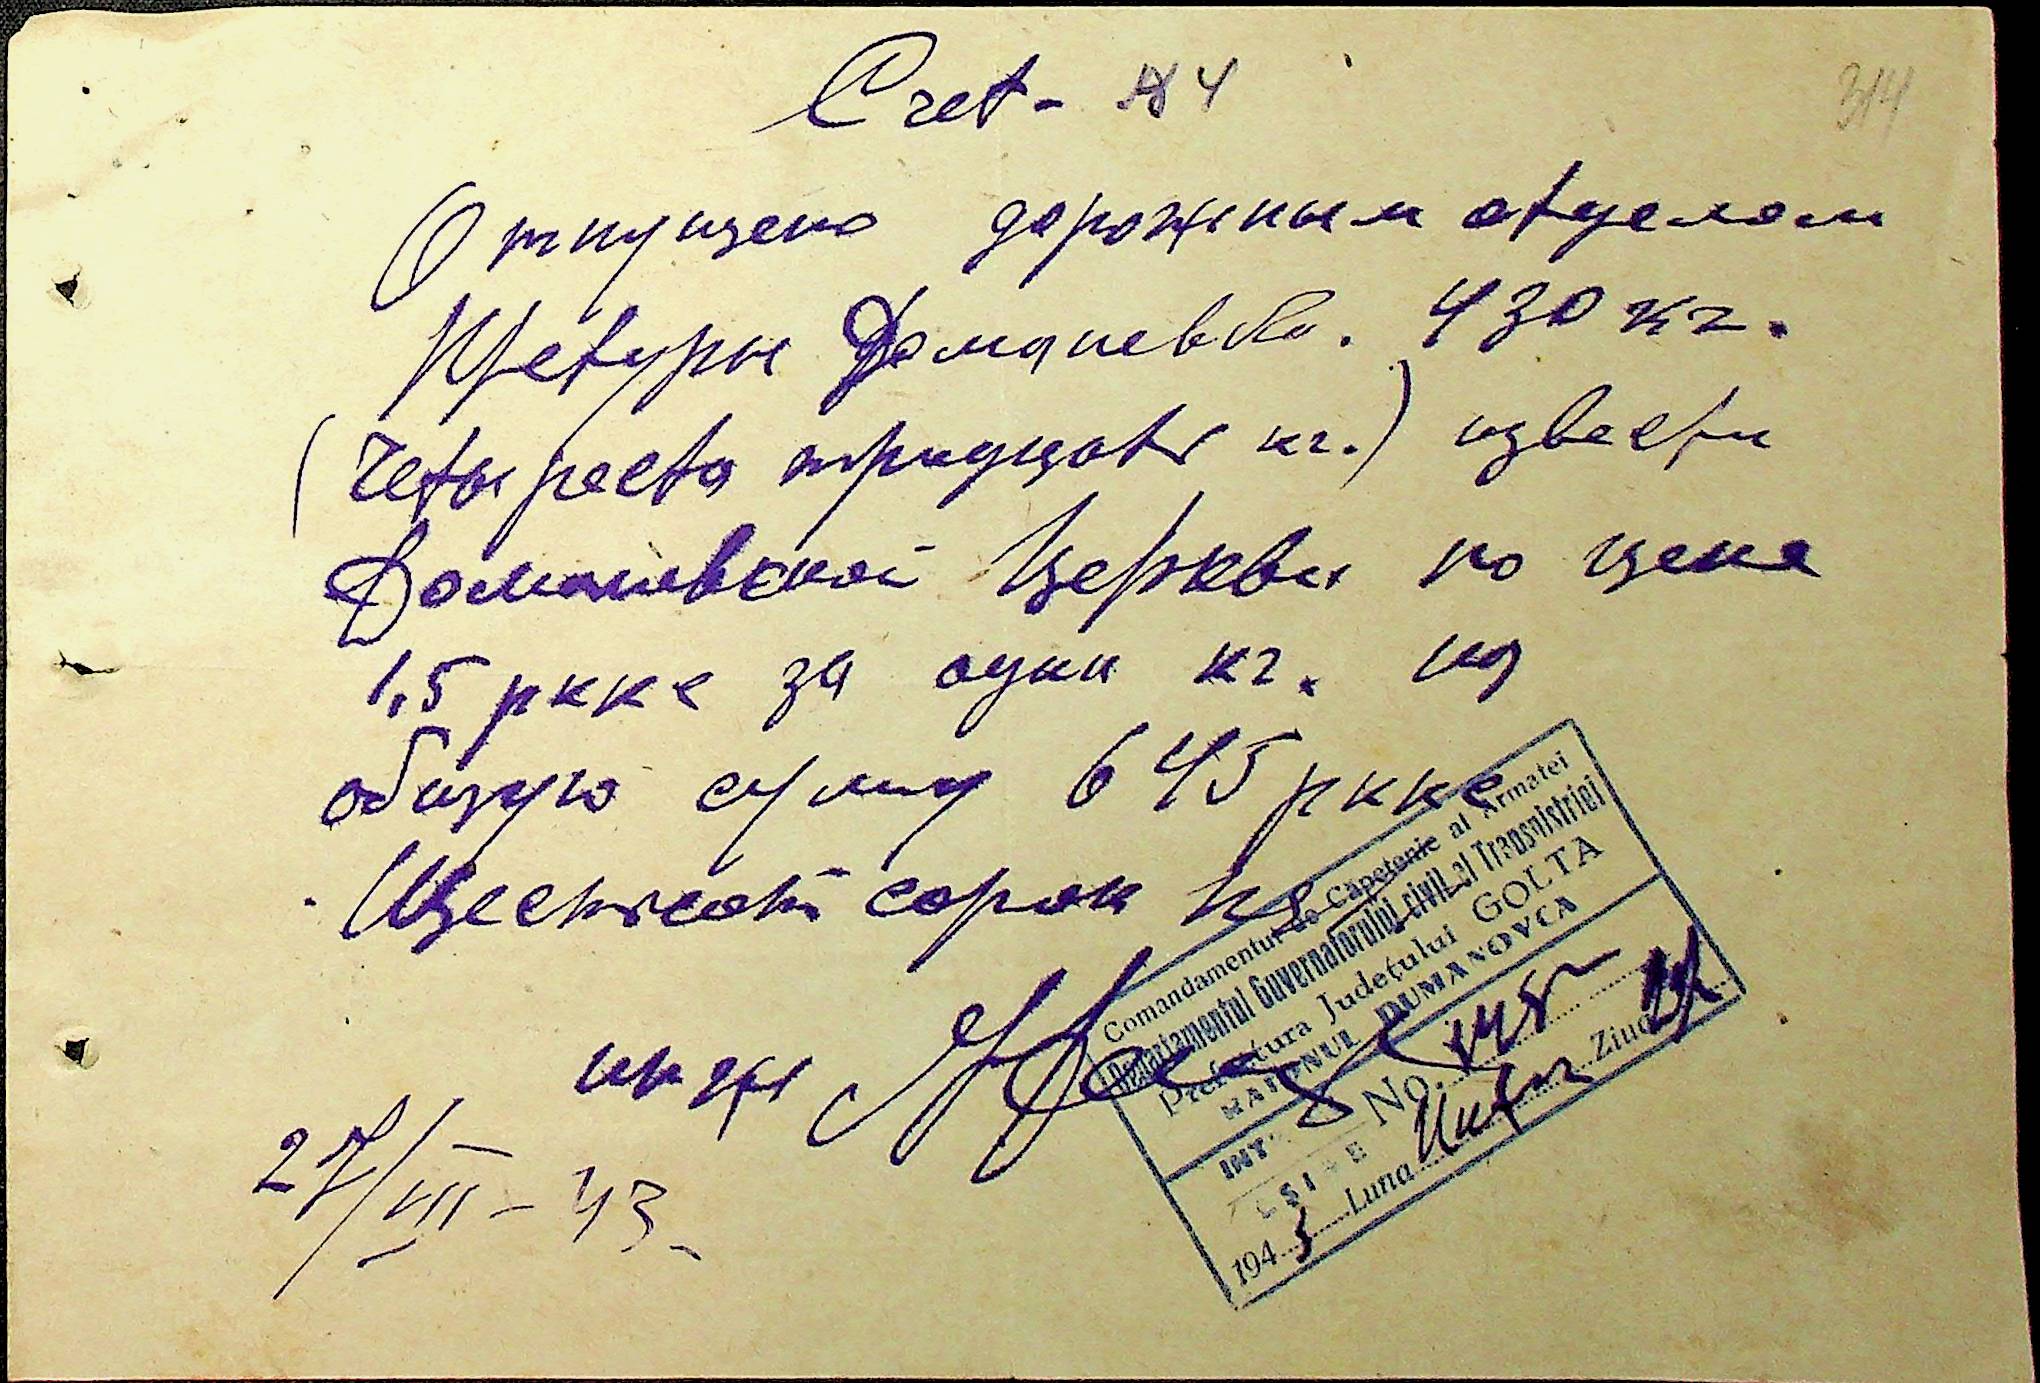 Счет - № 4
314
Отпущено дорожным отделом
Претуры Доманевка. 430 кг.
(Четыреста тридцать кг.) извести
Доманевской Церкви по цене
1,5 рккс за один кг. на
общую сумму 645 рккс
Шестьсот сорок пя
инж
27/III - 43
Comandamentul de Căpetenie al Armatei
Departamentul Guvernatorului civil al Transnistriei
Prefectura Județului GOLTA
RAIONUL DUMANOVCA
INT
EȘIRE No.
194 3 Luna Ziua